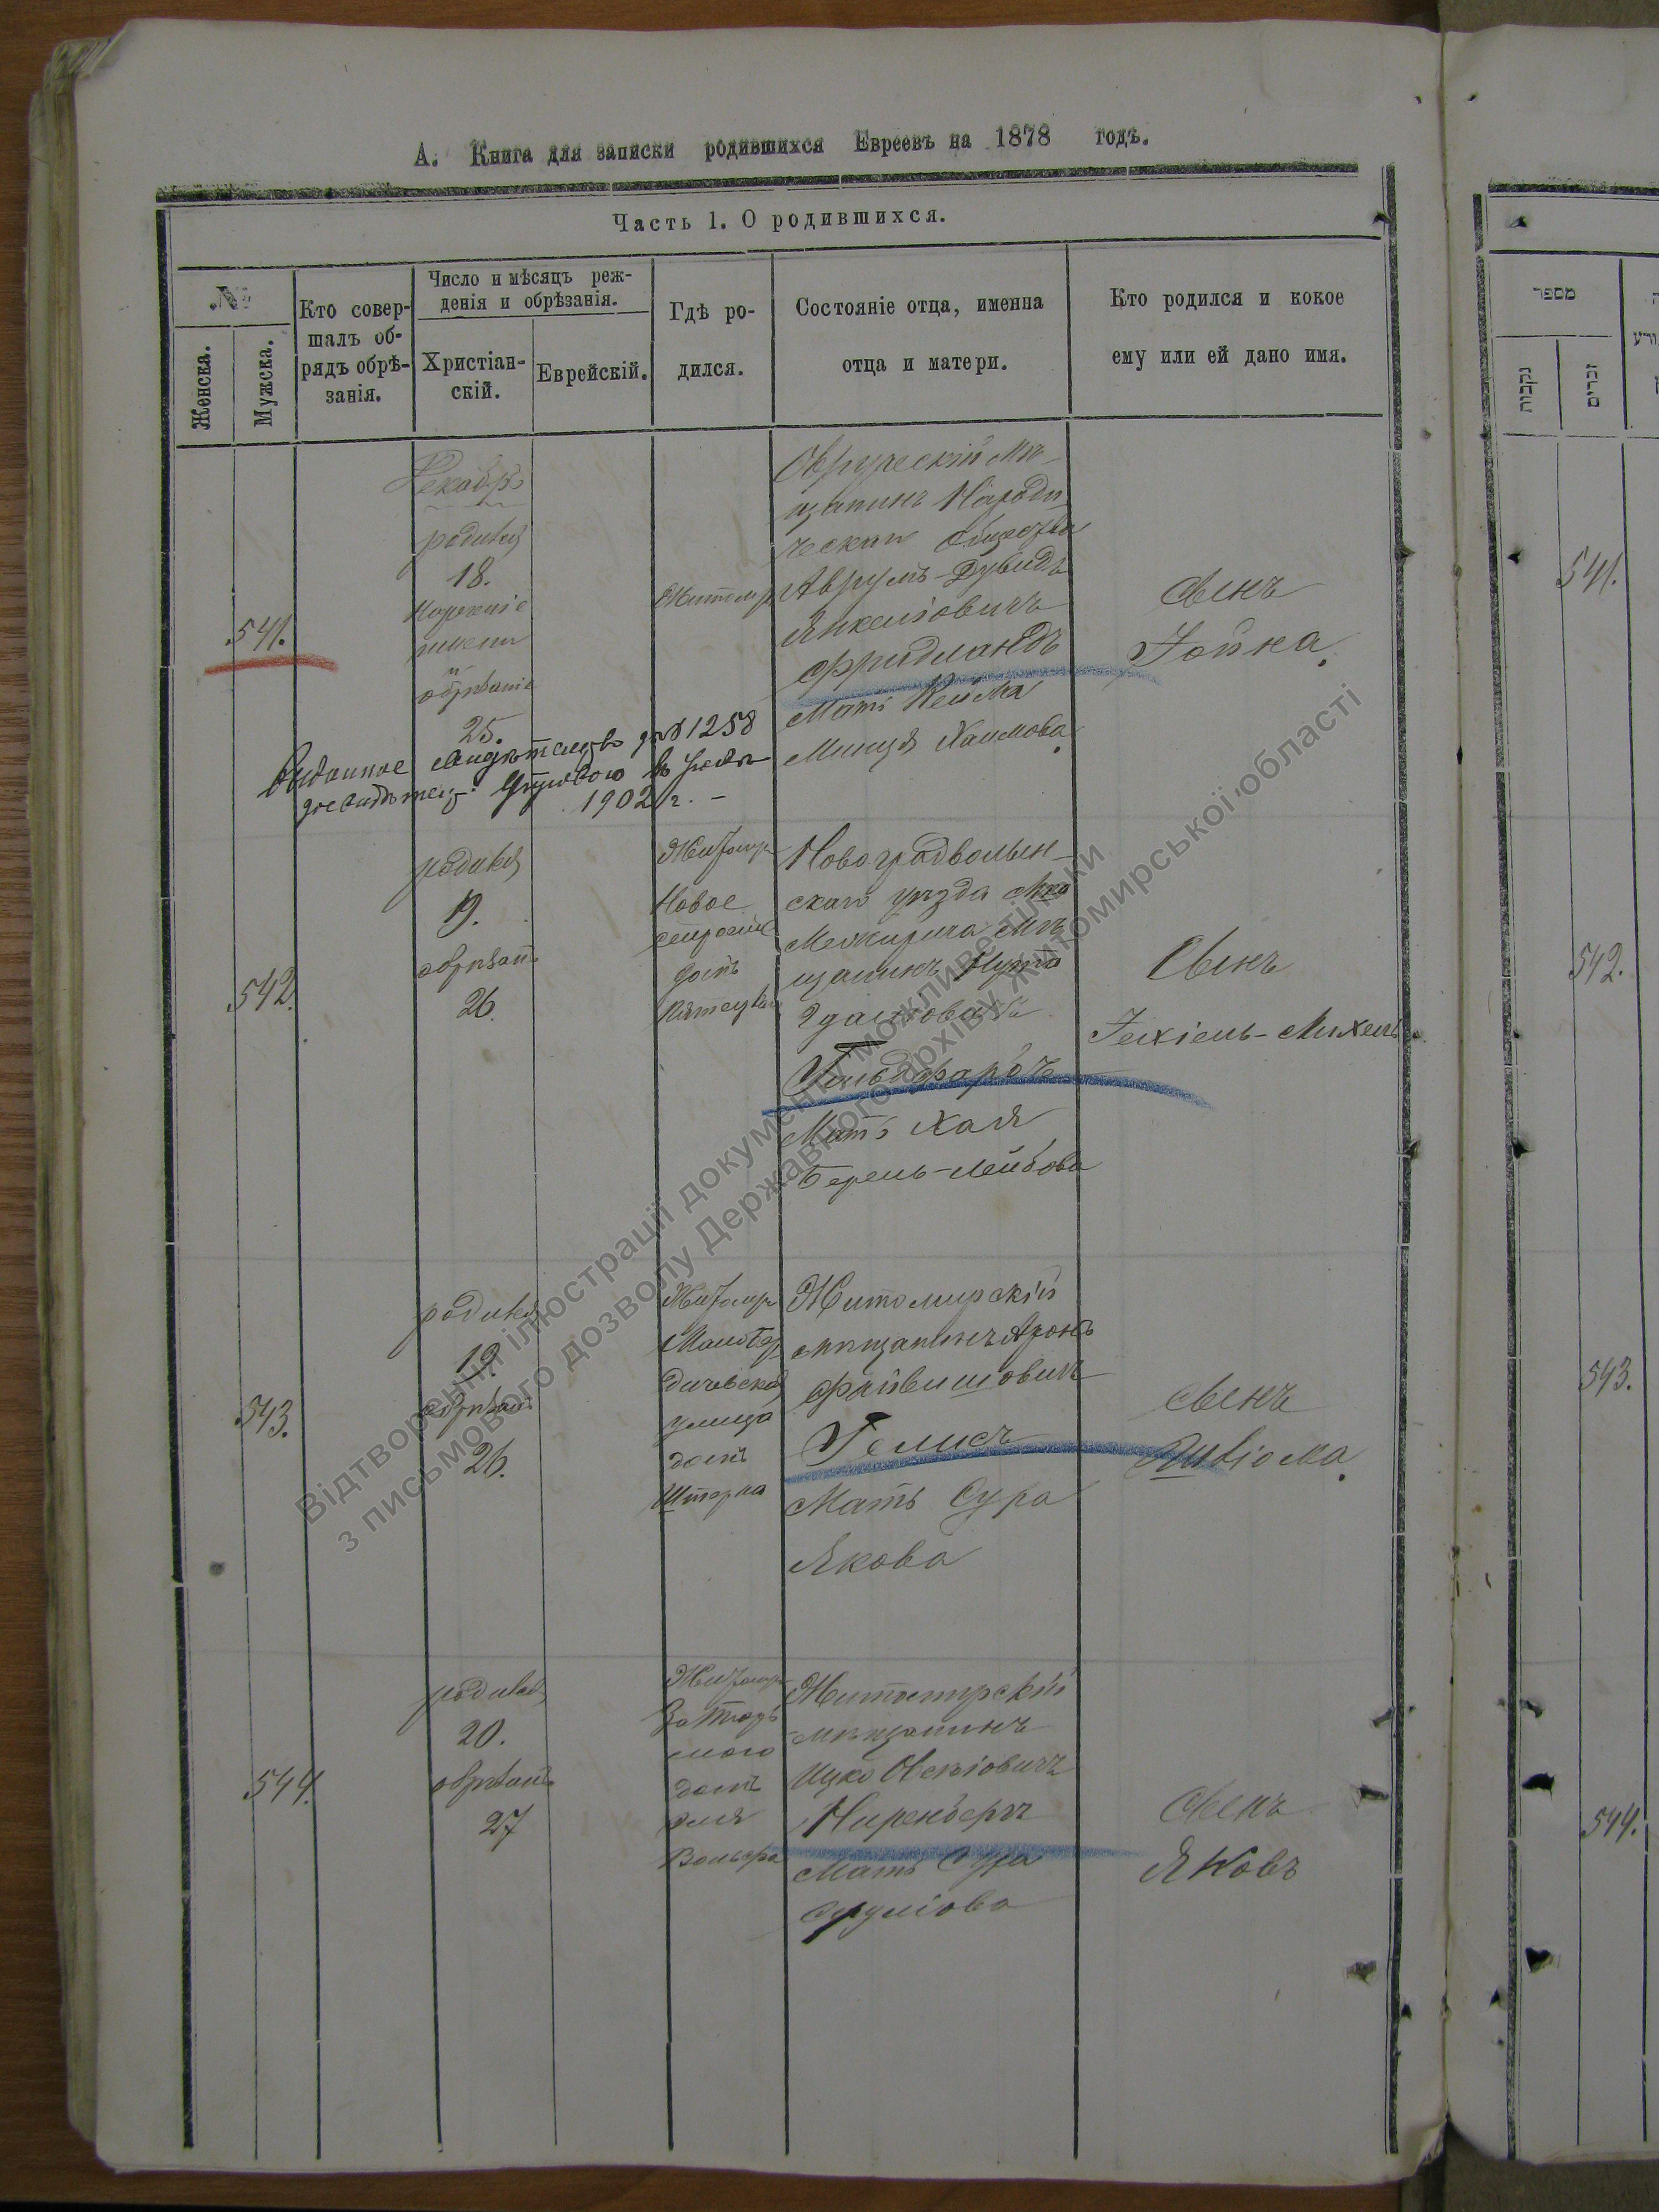 А. Книга для записки родившихся Евреевъ на 1878 годъ.
Часть 1. О родившихся.
№
Женска.
Мужска.
Кто совер-
шалъ об-
рядъ обрѣ-
занія.
Число и мѣсяцъ реж-
денія и обрѣзанія.
Христіан-
скій.
Еврейскій.
Гдѣ ро-
дился.
Состояніе отца, именна
отца и матери.
Кто родился и кокое
ему или ей дано имя.
541.
Декабрь
родился
18.
нареченіе
имени
и
обрѣзаніе
25.
Житомір
Овручскій мѣ-
щанинъ Народи
ческаго общества
Аврумъ-Дувидъ
Янкелiовичъ
Фридландъ
Мать Нейма
Минця Хаимова
Сынъ
Іойна.
1258
1902 г. –
542.
родился
19.
обрѣзанъ
26.
Житомір
Новое
строеніе
домъ
Новоградволын-
скаго уѣзда М-ка
Межирича мѣ
щанинъ Нута
Гольдфарбъ
Мать Хая
Берель-Лейбова
Сынъ
Іехіель-Михель
543.
родился
19.
обрѣзанъ
26.
Житомір
Малобер
дичевская
улица
домъ
Штерна
Житомирскій
мѣщанинъ Аронъ
Файвишовичъ
Гелисъ
Мать Сура
Якова
Сынъ
544.
родился
20.
обрѣзанъ
27
Житомір
домъ
Вольфа
Житомирскій
мѣщанинъ
Ицко
Ниренбергъ
Мать Сура
Срулiова
Сынъ
Яковъ
מספר
נקבות
זכרים
541.
542.
543.
544.
Відтворення ілюстрації документу можливе тільки
з письмового дозволу Державного архіву Житомирської області